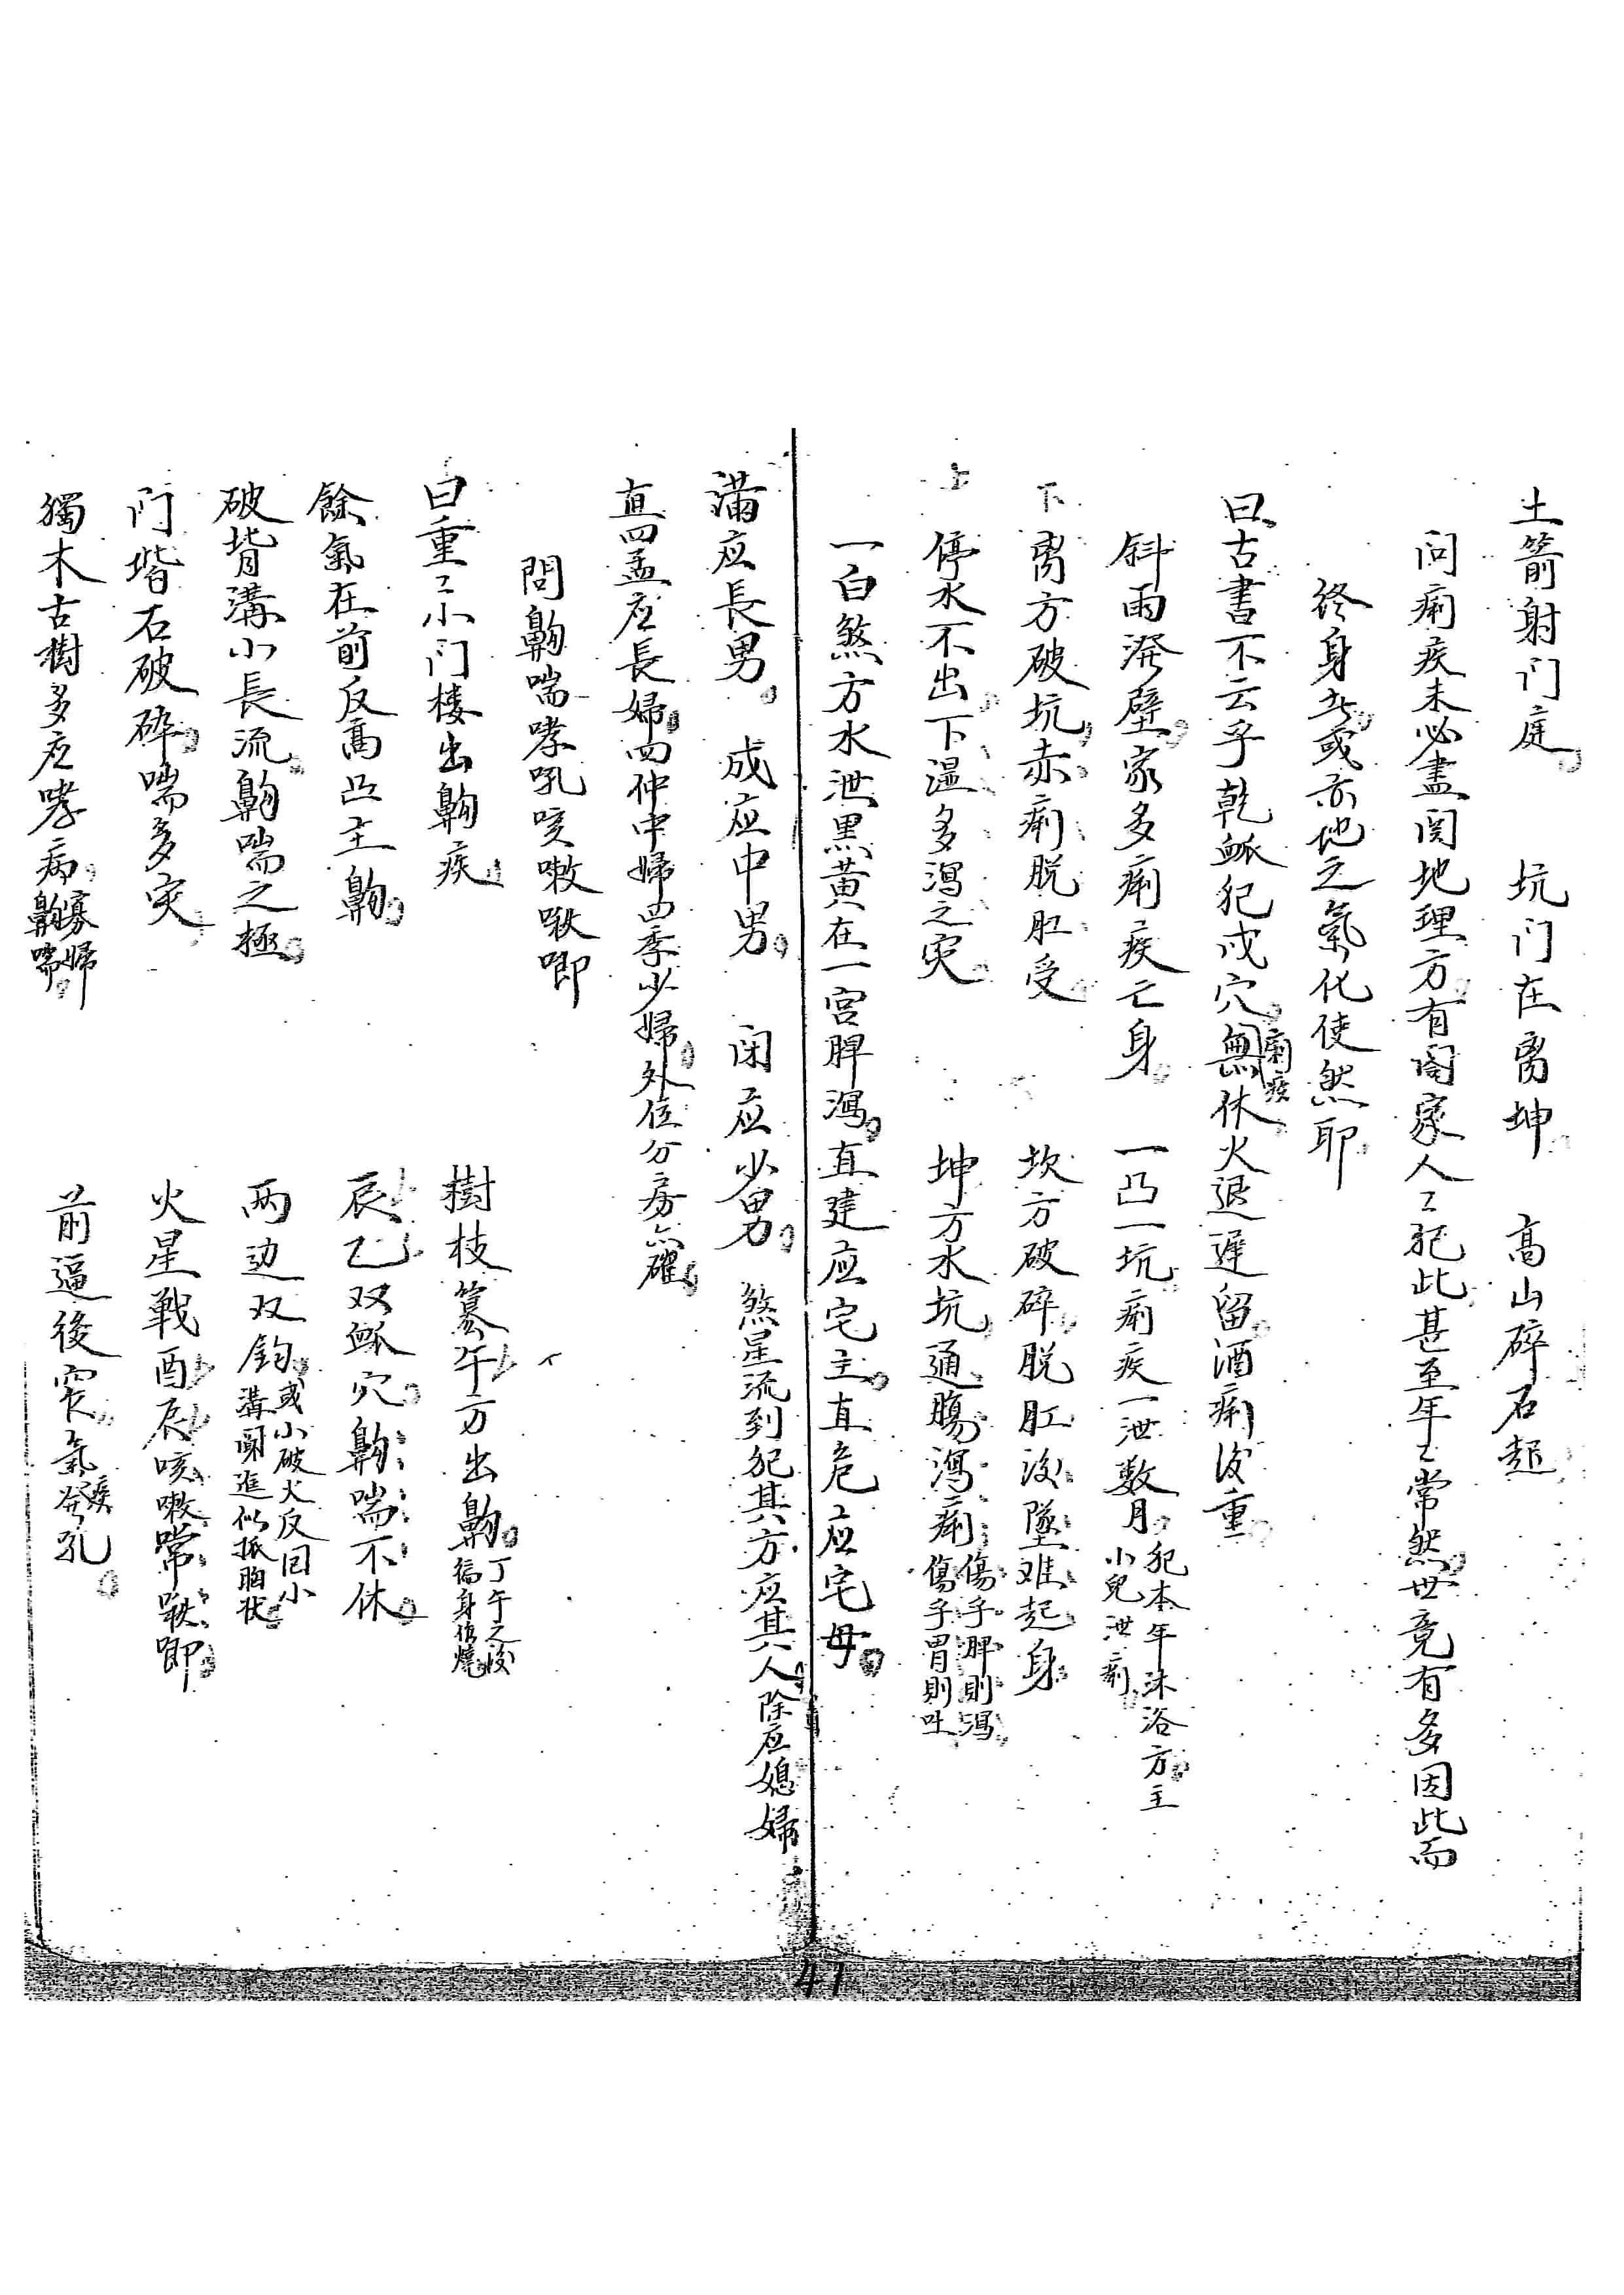 土箭射门庭　坑门在离坤　高山碎石起
问痢疾未必盡関地理方有闔家人〻犯此甚至年〻常然世竟有多因此而
終身者或亦地之氣化使然耶
曰古書不云乎乾龢犯戌穴無休火退遲留酒痢後重
痢疾
斜雨潑壁家多痢疾亡身　一凸一坑痢疾一泄数月
犯本年沐浴方主
小兒泄痢
下离方破坑赤痢脱肛受　坎方破碎脱肛後墜难起身
上停水不出下温多瀉之災　坤方水坑通腸瀉痢
傷乎脾則瀉
傷乎胃則吐
一白煞方水泄黒黄在一宫脾瀉直建应宅主直危应宅母
满应長男　成应中男　闭应少男　煞星流到犯其方应其人除应媳婦
直四孟应長婦四仲中婦四季少婦外位分房亦確
問齁喘哮吼咳嗽唧
曰重〻小门楼出齁疾　樹枝纂午方出齁
丁午之後
餘氣在前反高凸主齁　辰乙双龢穴齁喘不休
破背溝小長流齁喘之極　两边双鈎
或小破火反回小
溝関進似抓胸状
门堦石破碎喘多災　火星戰酉辰咳嗽常唧
獨木古樹多应哮病
寡婦
齁喘
前逼後窄氣發吼
疾
41